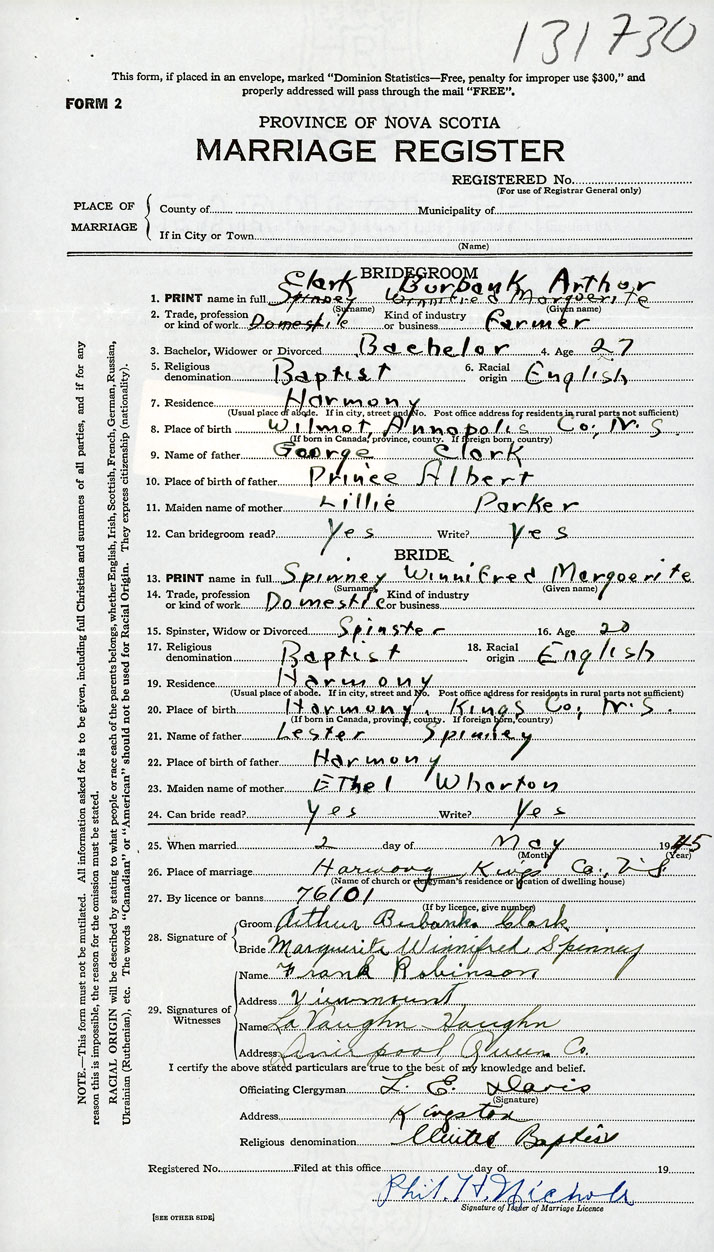 131730
This form, if placed in an envelope, marked "Dominion Statistics—Free, penalty for improper use $300," and
properly addressed will pass through the mail "FREE".
FORM 2
PROVINCE OF NOVA SCOTIA
MARRIAGE REGISTER
REGISTERED No.
(For use of Registrar General only)
PLACE OF MARRIAGE
County of Municipality of
If in City or Town
(Name)
BRIDEGROOM
Clark Burbank Arthur
1. PRINT name in full Spinney Winnifred Marguerite
(Surname) (Given name)
2. Trade, profession or kind of work Domestic Kind of industry or business Farmer
3. Bachelor, Widower or Divorced Bachelor 4. Age 27
5. Religious denomination Baptist 6. Racial origin English
7. Residence Harmony
(Usual place of abode. If in city, street and No. Post office address for residents in rural parts not sufficient)
8. Place of birth Wilmot Annapolis Co; N.S.
(If born in Canada, province, county. If foreign born, country)
9. Name of father George Clark
10. Place of birth of father Prince Albert
11. Maiden name of mother Lillie Parker
12. Can bridegroom read? Yes Write? Yes
BRIDE
13. PRINT name in full Spinney Winnifred Marguerite
(Surname) (Given name)
14. Trade, profession or kind of work Domestic Kind of industry or business
15. Spinster, Widow or Divorced Spinster 16. Age 20
17. Religious denomination Baptist 18. Racial origin English
19. Residence Harmony
(Usual place of abode. If in city, street and No. Post office address for residents in rural parts not sufficient)
20. Place of birth Harmony, Kings Co; N.S.
(If born in Canada, province, county. If foreign born, country)
21. Name of father Lester Spinney
22. Place of birth of father Harmony
23. Maiden name of mother Ethel Wharton
24. Can bride read? Yes Write? Yes
25. When married 2 day of May 1945
(Month) (Year)
26. Place of marriage Harmony Kings Co., N.S.
(Name of church or clergyman's residence or location of dwelling house)
27. By licence or banns 76101
(If by licence, give number)
28. Signature of
Groom Arthur Burbank Clark
Bride Marguerite Winnifred Spinney
29. Signatures of Witnesses
Name Frank Robinson
Address Viewmount
Name LaVaughn Vaughn
Address Liverpool Queens Co.
I certify the above stated particulars are true to the best of my knowledge and belief.
Officiating Clergyman L. E. Davis
(Signature)
Address Kingston
Religious denomination United Baptist
Registered No. Filed at this office day of 19
Phil. H. Nichols
Signature of Issuer of Marriage Licence
[SEE OTHER SIDE]
NOTE.—This form must not be mutilated. All information asked for is to be given, including full Christian and surnames of all parties, and if for any
reason this is impossible, the reason for the omission must be stated.
RACIAL ORIGIN will be described by stating to what people or race each of the parents belongs, whether English, Irish, Scottish, French, German, Russian,
Ukrainian (Ruthenian), etc. The words "Canadian" or "American" should not be used for Racial Origin. They express citizenship (nationality).